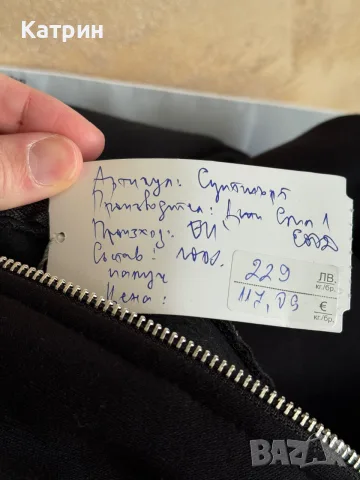 Катрин
Артикул: Суитшърт
Производител: Лил Стил 1
ЕООД
Произход: БГ
Състав: 100%
памук
Цена:
229 ЛВ.
кг/бр.
117,09 €
кг/бр.
BAZAR